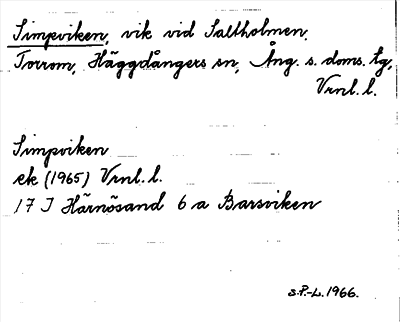 Simpviken, vik vid Saltholmen,
Torrom, Häggdångers sn, Ång. s. doms. tg,
Vrnl. l.
Simpviken
ek (1965) Vrnl. l.
17 J Härnösand 6 a Barsviken
S.P.-L. 1966.